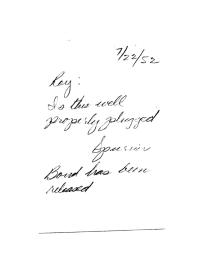 7/22/52
Roy:
Is this well
properly plugged
Bond has been
released